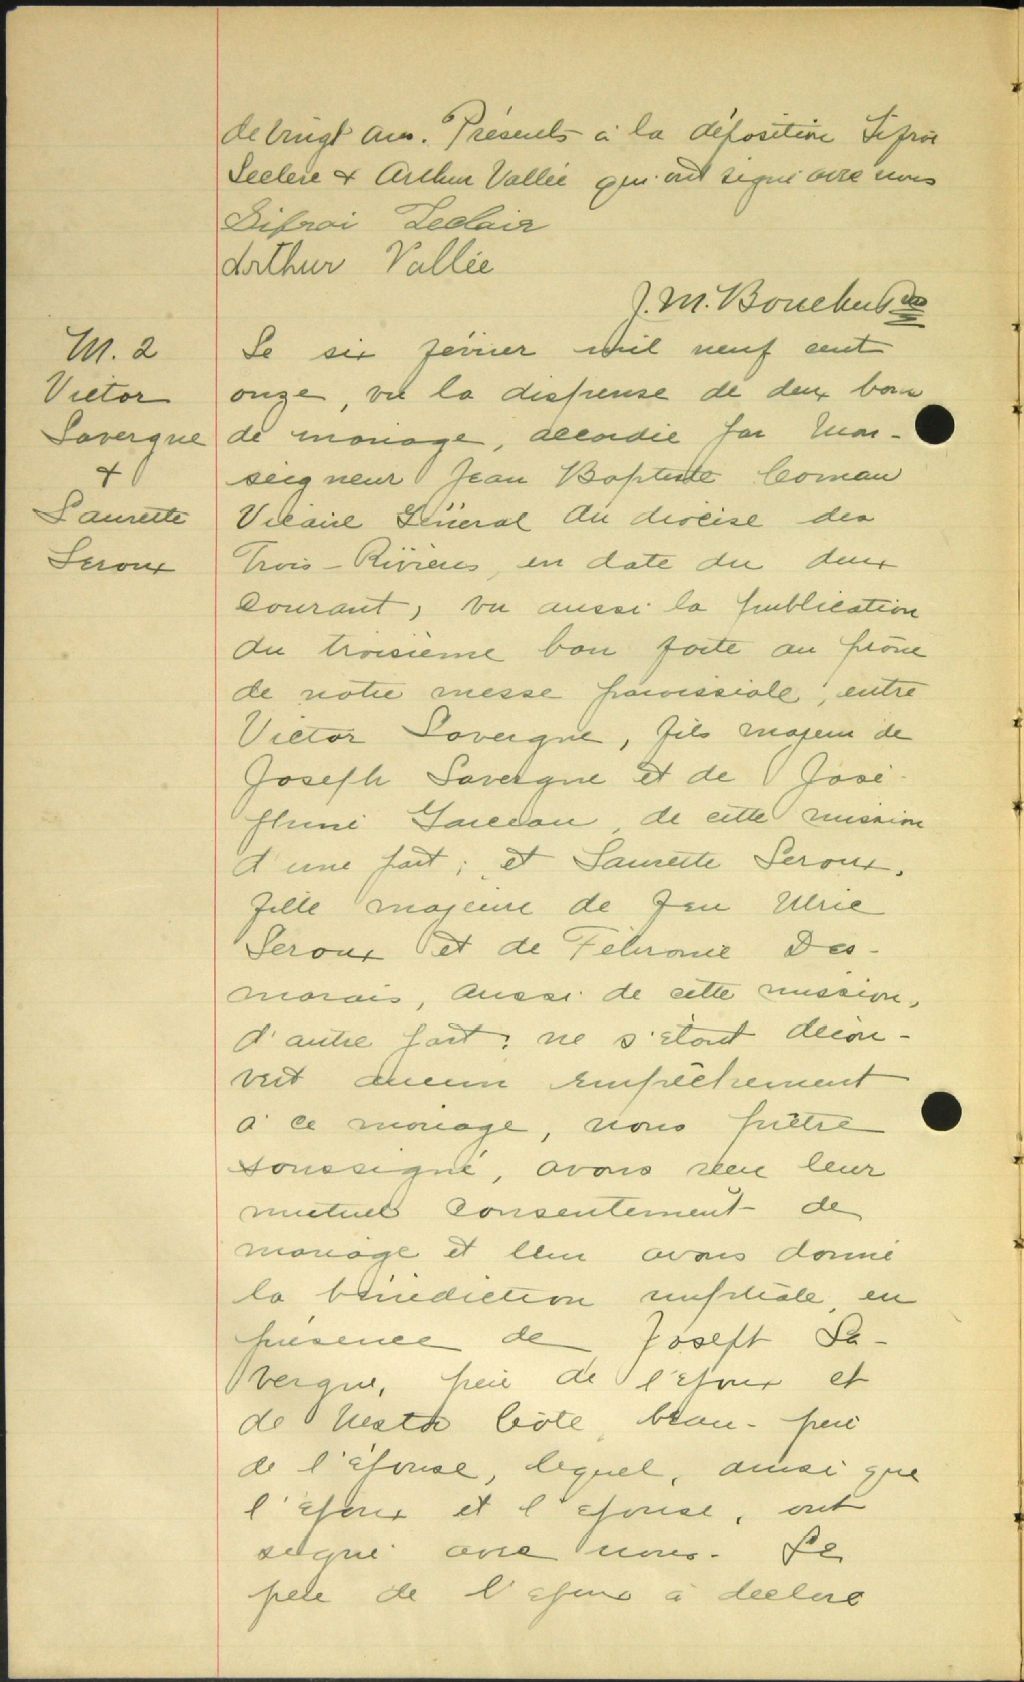 de vingt ans. Présents à la déposition Sifroi
Leclerc & Arthur Vallée qui ont signé avec nous
Sifroi Leclair
Arthur Vallée
J. M. Boucher Ptre
M. 2
Victor
Lavergne
&
Laurette
Leroux
Le six février mil neuf cent
onze, vu la dispense de deux bans
de mariage, accordée par Mon-
seigneur Jean Baptiste Comeau
Vicaire Général du diocèse des
Trois-Rivières, en date du deux
courant, vu aussi la publication
du troisième ban faite au prône
de notre messe paroissiale; entre
Victor Lavergne, fils majeur de
Joseph Lavergne et de José-
phine Garceau, de cette mission
d'une part; et Laurette Leroux,
fille majeure de feu Ulric
Leroux et de Fébronie Des-
marais, aussi de cette mission,
d'autre part; ne s'étant décou-
vert aucun empêchement
à ce mariage, nous prêtre
soussigné, avons reçu leur
mutuel consentement de
mariage et leur avons donné
la bénédiction nuptiale, en
présence de Joseph La-
vergne, père de l'époux et
de Nestor Côté, beau-père
de l'épouse, lequel, ainsi que
l'époux et l'épouse, ont
signé avec nous. Le
père de l'époux a déclaré